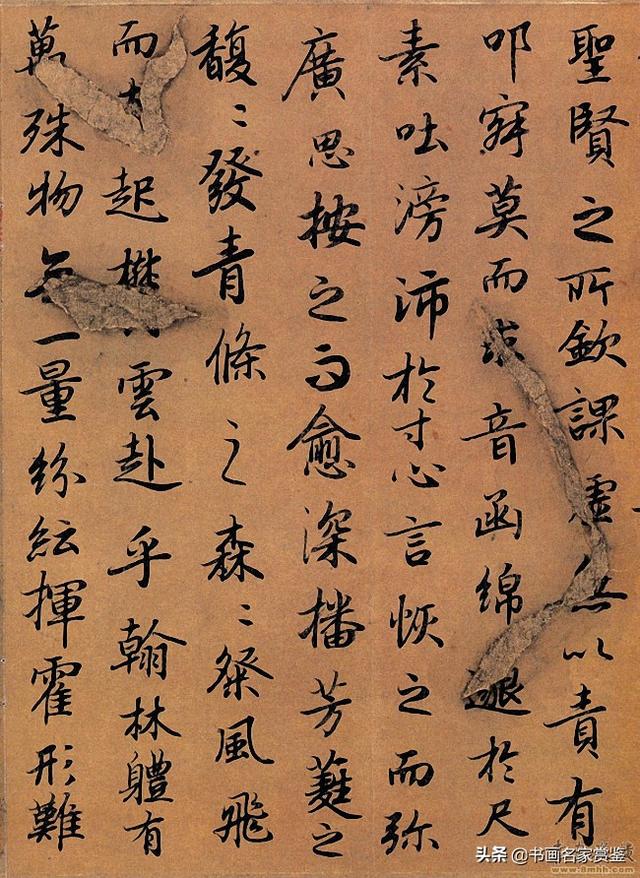 聖賢之所欽課虛無以責有
叩寂莫而求音函綿邈於尺
素吐滂沛於寸心言恢之而弥
廣思按之而愈深播芳蕤之
馥〻發青條之森〻粲風飛
而起欝雲赴乎翰林體有
萬殊物無一量紛紜揮霍形難
头条 @书画名家赏鉴
www.8mhh.com